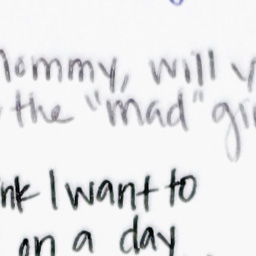 Mommy, will y
the "mad" gi
nk I want to
on a day